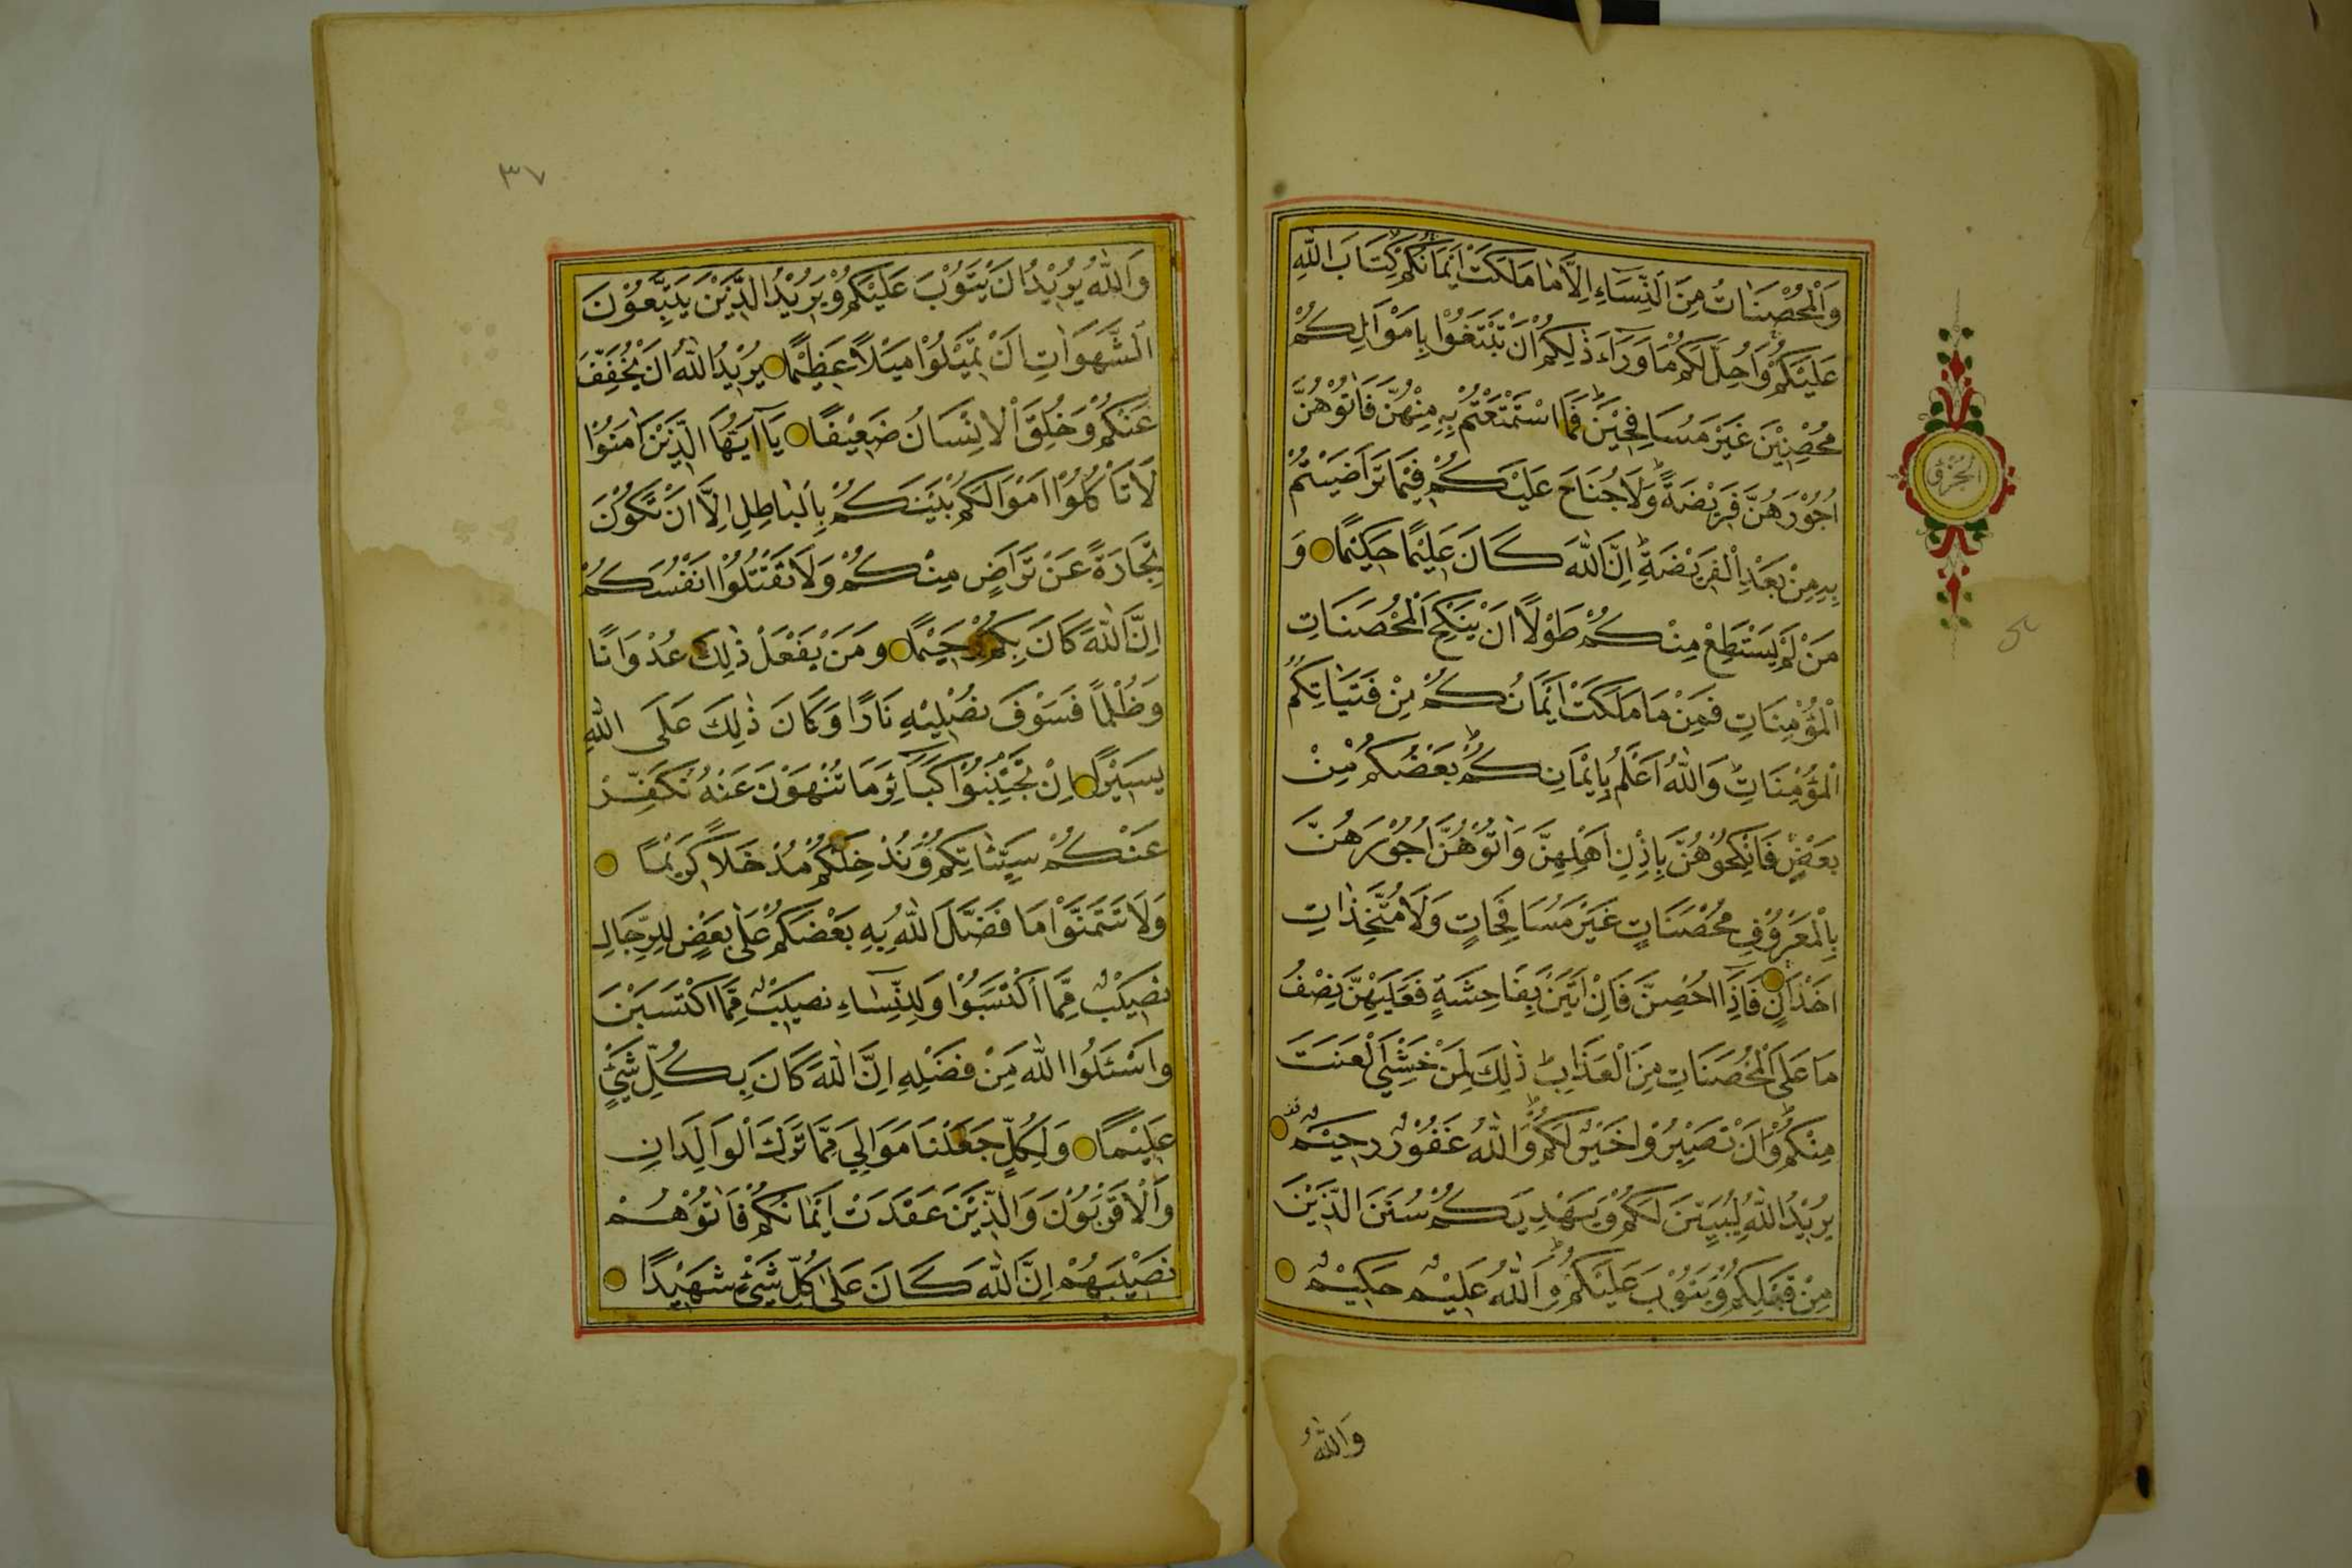 وَالْمُحْصَنَاتُ مِنَ النِّسَاءِ اِلَّا مَا مَلَكَتْ اَيْمَانُكُمْ كِتَابَ اللّٰهِ
عَلَيْكُمْ وَاُحِلَّ لَكُمْ مَا وَرَاءَ ذٰلِكُمْ اَنْ تَبْتَغُوْا بِاَمْوَالِكُمْ
مُحْصِنِيْنَ غَيْرَ مُسَافِحِيْنَ فَمَا اسْتَمْتَعْتُمْ بِهِ مِنْهُنَّ فَاٰتُوْهُنَّ
اُجُوْرَهُنَّ فَرِيْضَةً وَلَا جُنَاحَ عَلَيْكُمْ فِيْمَا تَرَاضَيْتُمْ
بِهِ مِنْ بَعْدِ الْفَرِيْضَةِ اِنَّ اللّٰهَ كَانَ عَلِيْمًا حَكِيْمًا وَ
مَنْ لَمْ يَسْتَطِعْ مِنْكُمْ طَوْلًا اَنْ يَنْكِحَ الْمُحْصَنَاتِ
الْمُؤْمِنَاتِ فَمِنْ مَا مَلَكَتْ اَيْمَانُكُمْ مِنْ فَتَيَاتِكُمُ
الْمُؤْمِنَاتِ وَاللّٰهُ اَعْلَمُ بِاِيْمَانِكُمْ بَعْضُكُمْ مِنْ
بَعْضٍ فَانْكِحُوْهُنَّ بِاِذْنِ اَهْلِهِنَّ وَاٰتُوْهُنَّ اُجُوْرَهُنَّ
بِالْمَعْرُوْفِ مُحْصَنَاتٍ غَيْرَ مُسَافِحَاتٍ وَلَا مُتَّخِذَاتِ
اَخْدَانٍ فَاِذَا اُحْصِنَّ فَاِنْ اَتَيْنَ بِفَاحِشَةٍ فَعَلَيْهِنَّ نِصْفُ
مَا عَلَى الْمُحْصَنَاتِ مِنَ الْعَذَابِ ذٰلِكَ لِمَنْ خَشِيَ الْعَنَتَ
مِنْكُمْ وَاَنْ تَصْبِرُوْا خَيْرٌ لَكُمْ وَاللّٰهُ غَفُوْرٌ رَحِيْمٌ
يُرِيْدُ اللّٰهُ لِيُبَيِّنَ لَكُمْ وَيَهْدِيَكُمْ سُنَنَ الَّذِيْنَ
مِنْ قَبْلِكُمْ وَيَتُوْبَ عَلَيْكُمْ وَاللّٰهُ عَلِيْمٌ حَكِيْمٌ
وَاللّٰهُ
٣٧
وَاللّٰهُ يُرِيْدُ اَنْ يَتُوْبَ عَلَيْكُمْ وَيُرِيْدُ الَّذِيْنَ يَتَّبِعُوْنَ
الشَّهَوَاتِ اَنْ تَمِيْلُوْا مَيْلًا عَظِيْمًا يُرِيْدُ اللّٰهُ اَنْ يُخَفِّفَ
عَنْكُمْ وَخُلِقَ الْاِنْسَانُ ضَعِيْفًا يَا اَيُّهَا الَّذِيْنَ اٰمَنُوْا
لَا تَاْكُلُوْا اَمْوَالَكُمْ بَيْنَكُمْ بِالْبَاطِلِ اِلَّا اَنْ تَكُوْنَ
تِجَارَةً عَنْ تَرَاضٍ مِنْكُمْ وَلَا تَقْتُلُوْا اَنْفُسَكُمْ
اِنَّ اللّٰهَ كَانَ بِكُمْ رَحِيْمًا وَمَنْ يَفْعَلْ ذٰلِكَ عُدْوَانًا
وَظُلْمًا فَسَوْفَ نُصْلِيْهِ نَارًا وَكَانَ ذٰلِكَ عَلَى اللّٰهِ
يَسِيْرًا اِنْ تَجْتَنِبُوْا كَبَائِرَ مَا تُنْهَوْنَ عَنْهُ نُكَفِّرْ
عَنْكُمْ سَيِّئَاتِكُمْ وَنُدْخِلْكُمْ مُدْخَلًا كَرِيْمًا
وَلَا تَتَمَنَّوْا مَا فَضَّلَ اللّٰهُ بِهِ بَعْضَكُمْ عَلٰى بَعْضٍ لِلرِّجَالِ
نَصِيْبٌ مِمَّا اكْتَسَبُوْا وَلِلنِّسَاءِ نَصِيْبٌ مِمَّا اكْتَسَبْنَ
وَاسْئَلُوا اللّٰهَ مِنْ فَضْلِهِ اِنَّ اللّٰهَ كَانَ بِكُلِّ شَيْئٍ
عَلِيْمًا وَلِكُلٍّ جَعَلْنَا مَوَالِيَ مِمَّا تَرَكَ الْوَالِدَانِ
وَالْاَقْرَبُوْنَ وَالَّذِيْنَ عَقَدَتْ اَيْمَانُكُمْ فَاٰتُوْهُمْ
نَصِيْبَهُمْ اِنَّ اللّٰهَ كَانَ عَلٰى كُلِّ شَيْئٍ شَهِيْدًا